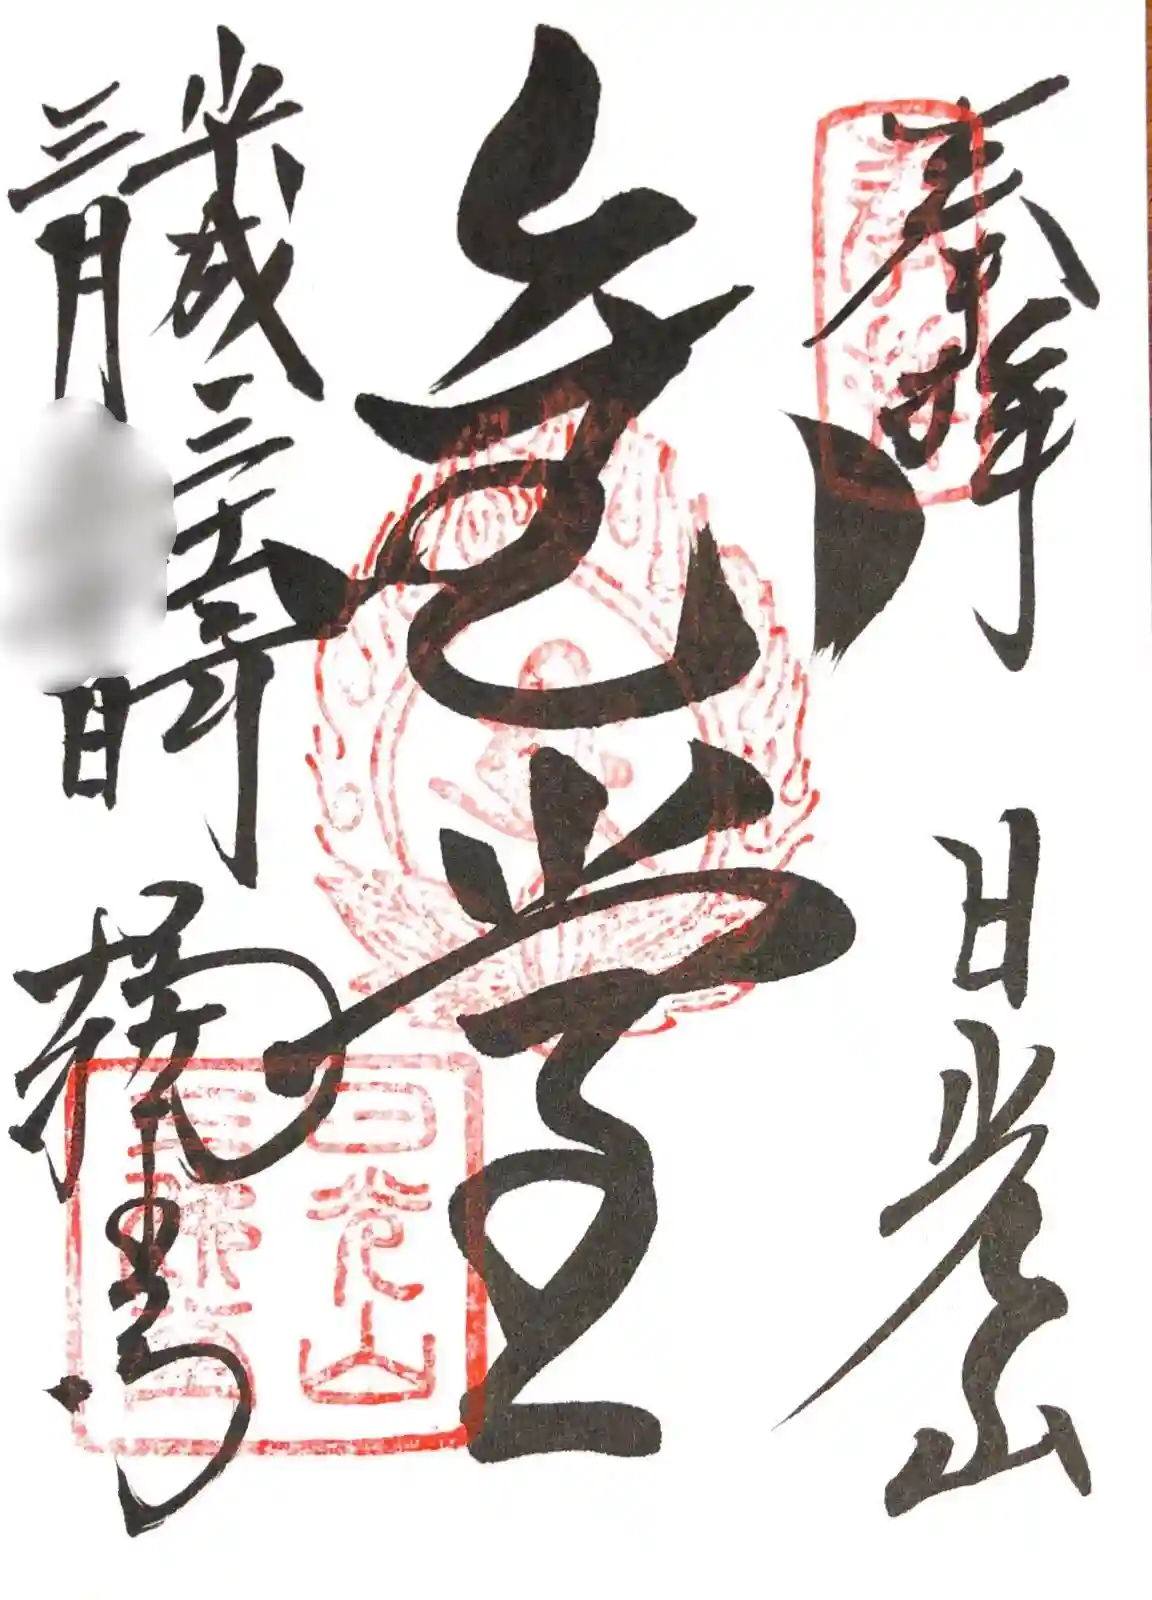 奉拝
日光山
堂
平成三十一年
三月 日
輪王寺
日光山